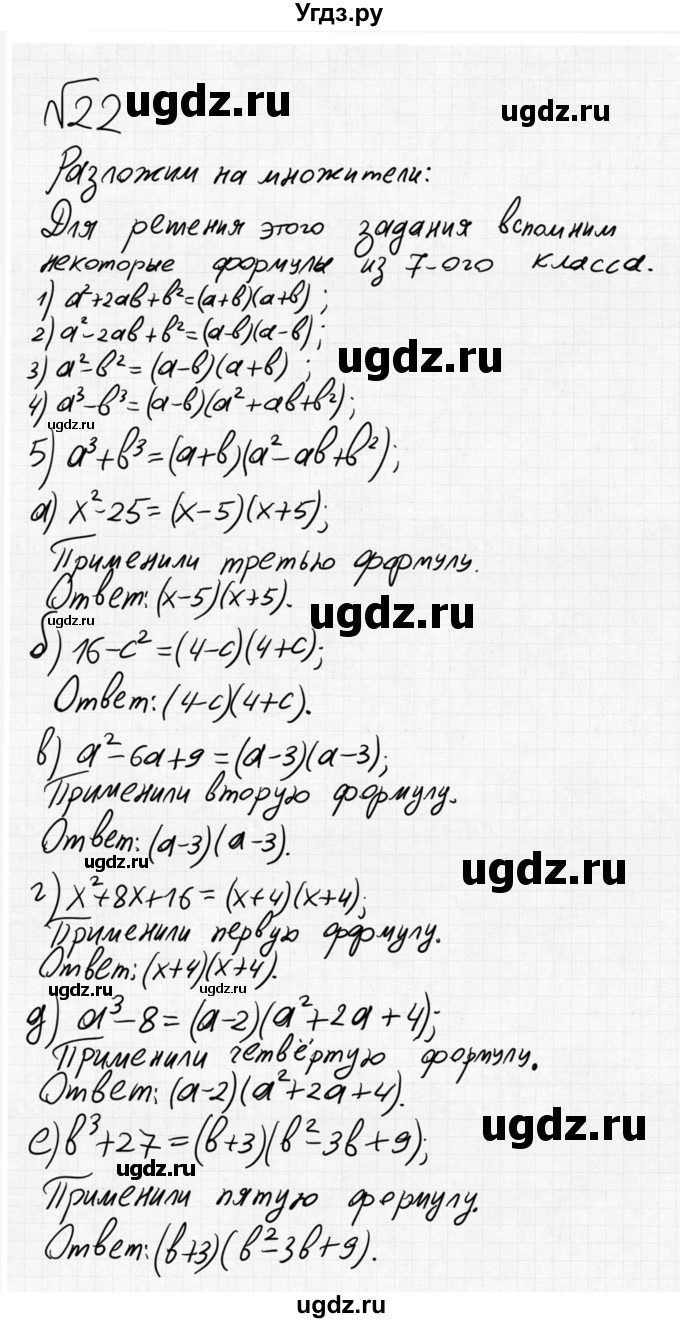 Угдз.ру
№22 ugdz.ru ugdz.ru
Разложим на множители:
Для решения этого задания вспомним
некоторые формулы из 7-ого класса.
1) a²+2ab+b²=(a+b)(a+b);
2) a²-2ab+b²=(a-b)(a-b);
3) a²-b²=(a-b)(a+b); ugdz.ru
4) a³-b³=(a-b)(a²+ab+b²);
ugdz.ru
5) a³+b³=(a+b)(a²-ab+b²);
а) x²-25=(x-5)(x+5);
Применили третью формулу.
Ответ: (x-5)(x+5). ugdz.ru
ugdz.ru
б) 16-c²=(4-c)(4+c);
Ответ: (4-c)(4+c).
в) a²-6a+9=(a-3)(a-3);
Применили вторую формулу.
Ответ: (a-3)(a-3).
ugdz.ru ugdz.ru
г) x²+8x+16=(x+4)(x+4);
Применили первую формулу.
Ответ: (x+4)(x+4).
ugdz.ru ugdz.ru
д) a³-8=(a-2)(a²+2a+4);
Применили четвёртую формулу.
Ответ: (a-2)(a²+2a+4).
ugdz.ru
е) b³+27=(b+3)(b²-3b+9);
ugdz.ru
Применили пятую формулу.
Ответ: (b+3)(b²-3b+9).
ugdz.ru